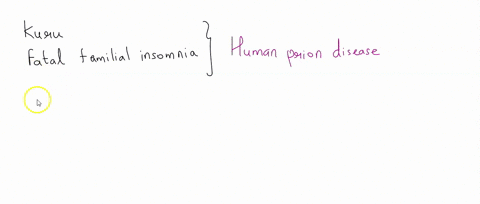 Kuru
Fatal familial insomnia } Human prion disease